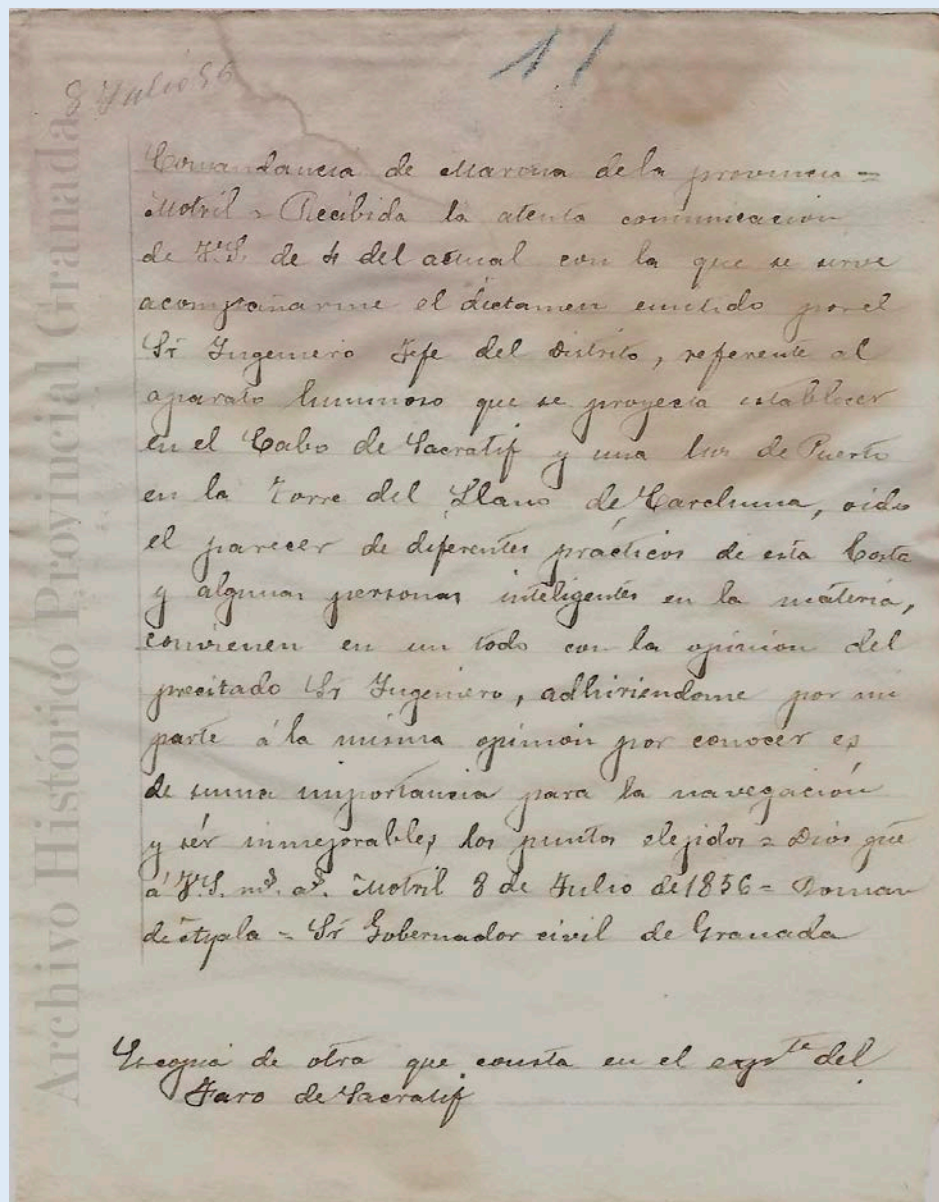 11
8 Julio 56
Comandancia de Marina de la provincia =
Motril = Recibida la atenta comunicacion
de V.S. de 4 del actual con la que se sirve
acompañarme el dictamen emitido por el
Sr Ingeniero Jefe del Distrito, referente al
aparato luminoso que se proyecta establecer
en el Cabo de Sacratif y una luz de Puerto
en la Torre del Llano de Carchuna, oido
el parecer de diferentes prácticos de esta Costa
y algunas personas inteligentes en la materia,
convienen en un todo con la opinion del
precitado Sr Ingeniero, adhiriendome por mi
parte á la misma opinion por conocer es
de suma importancia para la navegación
y sér inmejorables los puntos elejidos = Dios gue
á V.S. ms. as. Motril 8 de Julio de 1856 =
de Ayala = Sr Gobernador civil de Granada
Es copia de otra que consta en el expte del
Faro de Sacratif
Archivo Histórico Provincial Granada